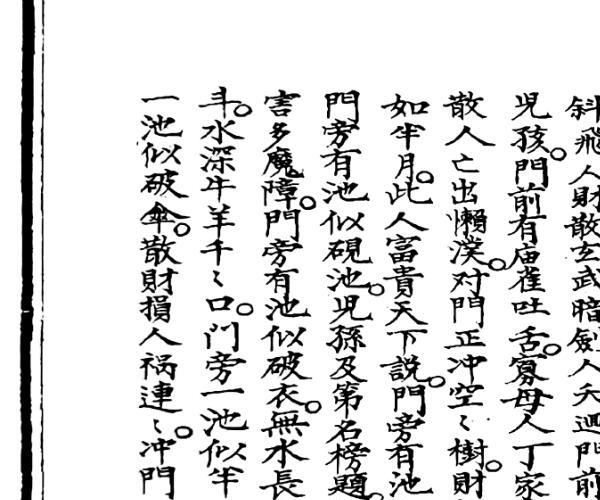 斜飛人財散玄武暗劍人夭過門前
児孩。門前有庙雀吐舌。寡母人丁家
散人亡出懶漢。对門正冲空〻樹。財
如半月。此人富貴天下説。門旁有池
門旁有池似硯池。児孫及第名榜題。
害多魔障。門旁有池似破衣。無水長
斗。水深牛羊千〻口。门旁一池似半
一池似破傘。散財損人祸連〻。冲門